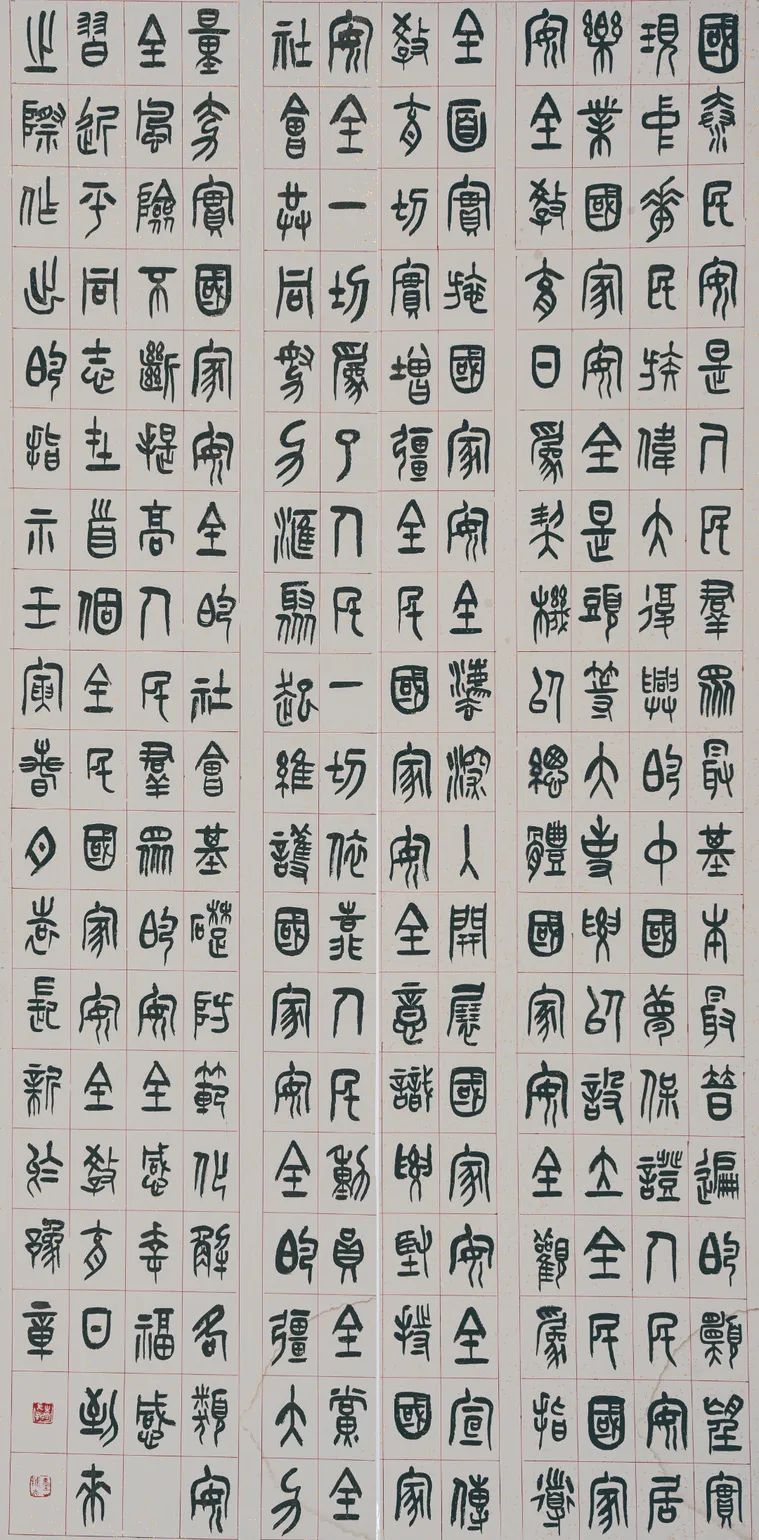 國泰民安是人民羣眾最基本最普遍的願望實
現中華民族偉大復興的中國夢保證人民安居
樂業國家安全是頭等大事與以設立全民國家
安全教育日為契機以總體國家安全觀為指導
全面實施國家安全灋深入開展國家安全宣傳
教育切實增彊全民國家安全意識與堅持國家
安全一切為了人民一切依靠人民動員全黨全
社會共同努力匯聚起維護國家安全的彊大力
量夯實國家安全的社會基礎防範化解各類安
全風險不斷提高人民羣眾的安全感幸福感
習近平同志在首個全民國家安全教育日到來
之際作出的指示壬寅春月袁長新於豫章